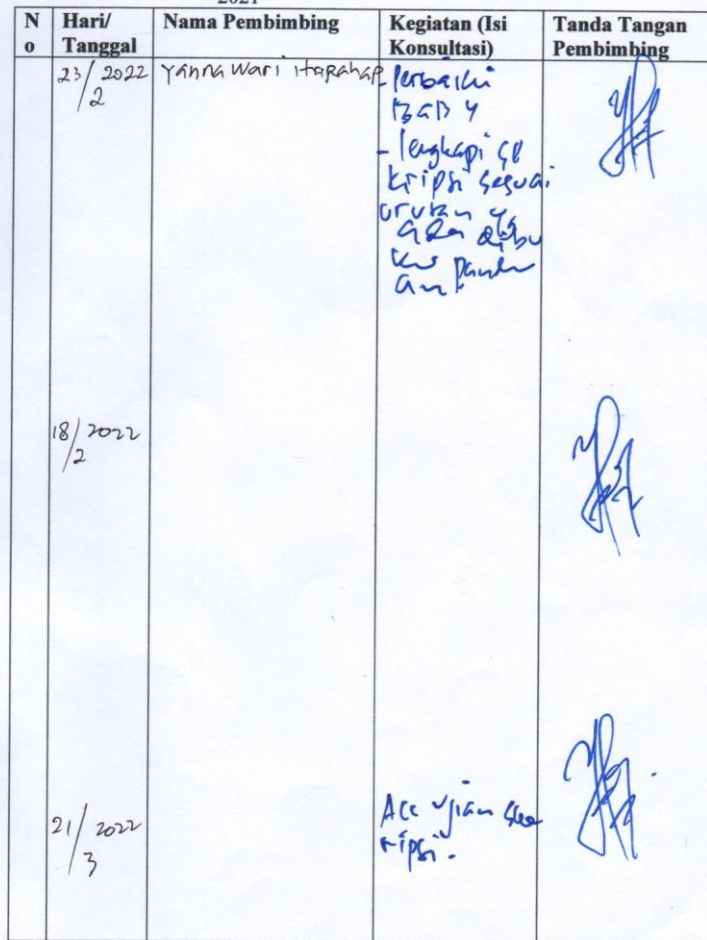 2021
N
o
Hari/
Tanggal
Nama Pembimbing
Kegiatan (Isi
Konsultasi)
Tanda Tangan
Pembimbing
23/2 2022
Yanna Wari Harahap
- Perbaiki
BAB 4
- lengkapi
kripsi sesuai
urutan yg
ada dibu
ku pandu
an.
18/2 2022
21/3 2022
Acc ujian
ripsi.